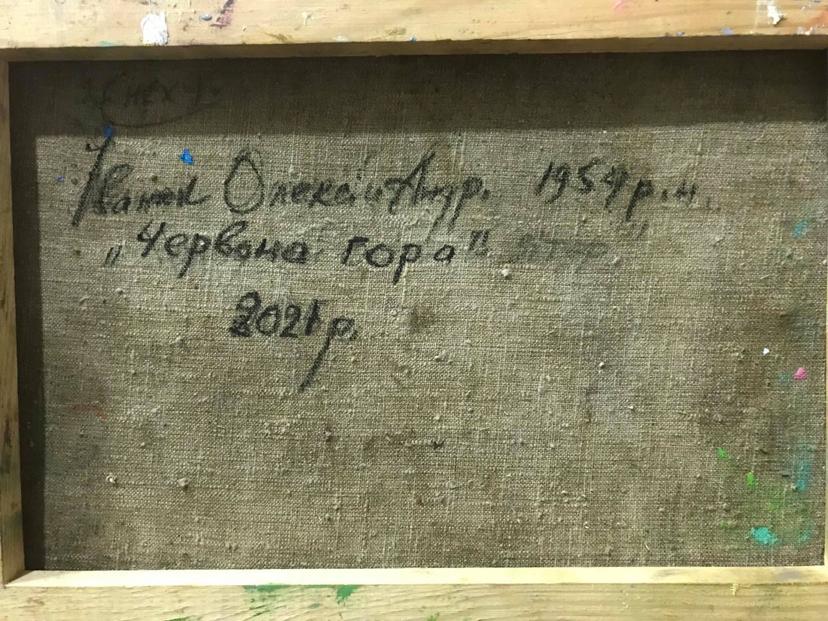 Іванюк Олексій Андр. 1954 р.н.
„Червона гора"
2021р.